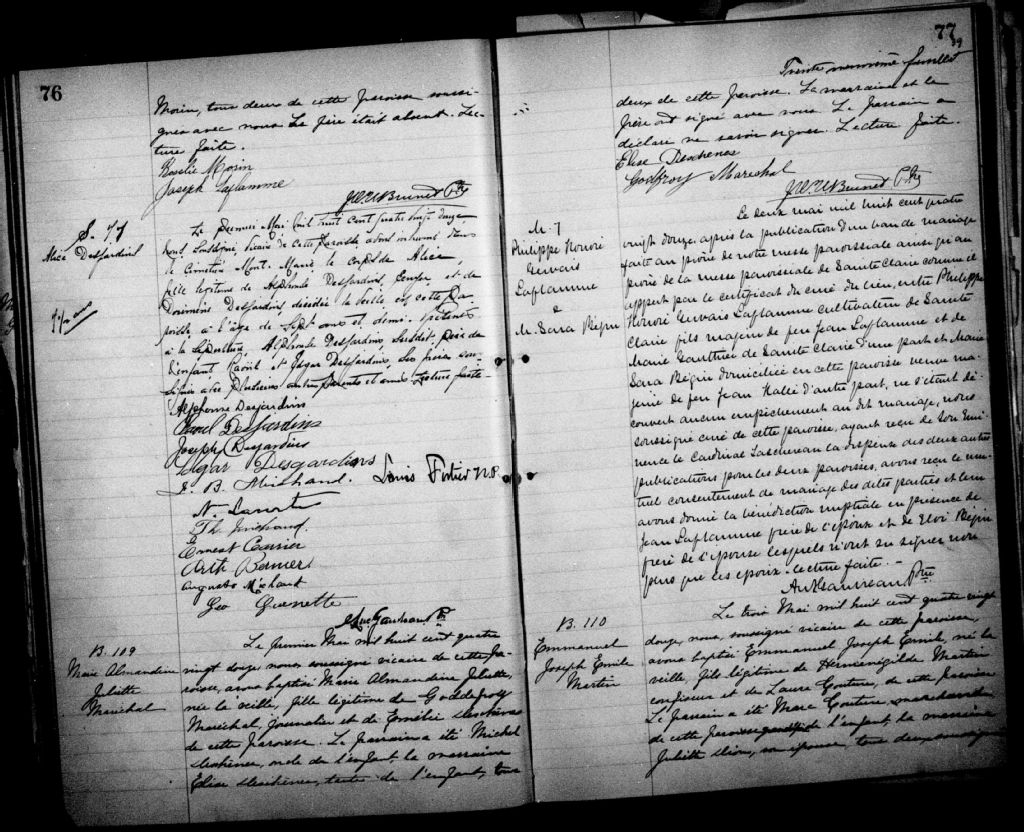 76
Morin, tous deux de cette paroisse soussi-
gnés avec nous. Le père était absent. Lec-
ture faite.
Rosalie Morin
Joseph Laflamme
J.O.U. Brunet Ptre
S. 77
Alice Desjardins
Le premier Mai mil huit cent quatre vingt douze
nous soussigné, vicaire de cette paroisse avons inhumé dans
le cimetière Mont-Marie, le corps de Alice,
fille légitime de Alphonse Desjardins, et de
Dorimène Desjardins, décédée la veille en cette Pa-
roisse à l'âge de sept ans et demi. Présents
à la sépulture, Alphonse Desjardins, susdit, père de
l'enfant Raoul et Edgar Desjardins, ses frères sou-
signés avec plusieurs autres parents et amis. Lecture faite.
Alphonse Desjardins
Raoul Desjardins
Joseph Desjardins
Edgar Desjardins
L. B. Michaud.
Louis Fortier
N. Lacourt
Th. Michaud
Ernest Carrier
Arth Bernier
Auguste Michaud
Geo Guenette
Ptre
B. 109
Marie Almandine
Juliette
Maréchal
Le premier Mai mil huit cent quatre
vingt douze nous soussigné vicaire de cette Pa-
roisse, avons baptisé Marie Almandine Juliette,
née la veille, fille légitime de Goddefroy
Maréchal, journalier et de Deschènes
de cette paroisse. Le parrain a été Michel
Deschènes, oncle de l'enfant, la marraine
Elise Deschènes, tante de l'enfant, tous
77
39
Trente neuvième feuillet
deux de cette paroisse. La marraine et le
père ont signé avec nous. Le parrain a
déclaré ne savoir signer. Lecture faite.
Elise Deschenes
Godfroy Marechal
J.O.U. Brunet Ptre
M. 7
Philippe Honoré
Gervais
Laflamme
&
M. Sara Bégin
Le deux mai mil huit cent quatre
vingt douze, après la publication d'un ban de mariage
faite au prône de notre messe paroissiale ainsi qu'au
prône de la messe paroissiale de Sainte Claire comme il
appert par le certificat du curé du lieu, entre Philippe
Honoré Gervais Laflamme cultivateur de Sainte
Claire fils majeur de feu Jean Laflamme et de
Marie Gauthier de Sainte Claire d'une part et Marie
Sara Bégin domiciliée en cette paroisse veuve ma-
jeure de feu Jean Hallé d'autre part, ne s'étant dé-
couvert aucun empêchement au dit mariage, nous
soussigné curé de cette paroisse, ayant reçu de Son Emi-
nence le Cardinal Taschereau la dispense des deux autres
publications pour les deux paroisses, avons reçu le mu-
tuel consentement de mariage des dites parties et leur
avons donné la bénédiction nuptiale en présence de
Jean Laflamme frère de l'époux et de Eloi Bégin
frère de l'épouse lesquels n'ont su signer non
plus que les époux. Lecture faite. -
Ptre
B. 110
Emmanuel
Joseph Emile
Martin
Le trois Mai mil huit cent quatre vingt
douze, nous, soussigné vicaire de cette paroisse,
avons baptisé Emmanuel Joseph Emile, né la
veille, fils légitime de Herménégilde Martin
confiseur et de Laure Couture, de cette paroisse
Le parrain a été Marc Couture, marchand
de cette paroisse l'enfant, la marraine
Juliette Dion, son épouse, tous deux soussignés